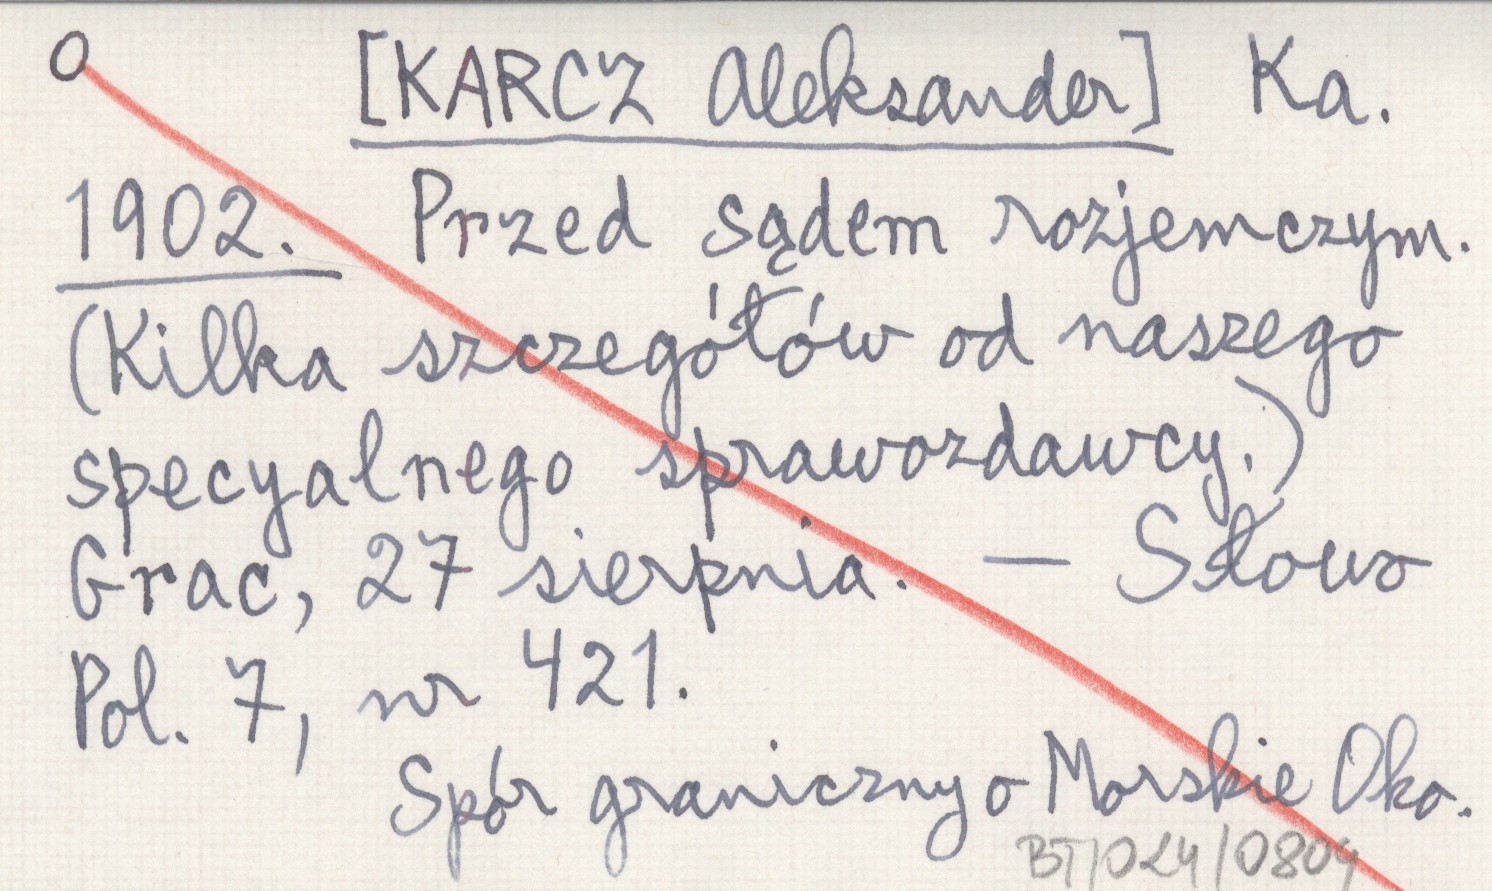 O [KARCZ Aleksander] Ka.
1902. Przed sądem rozjemczym.
(Kilka szczegółów od naszego
specyalnego sprawozdawcy.)
Grac, 27 sierpnia. — Słowo
Pol. 7, nr 421.
Spór graniczny o Morskie Oko.
BT/024/0804